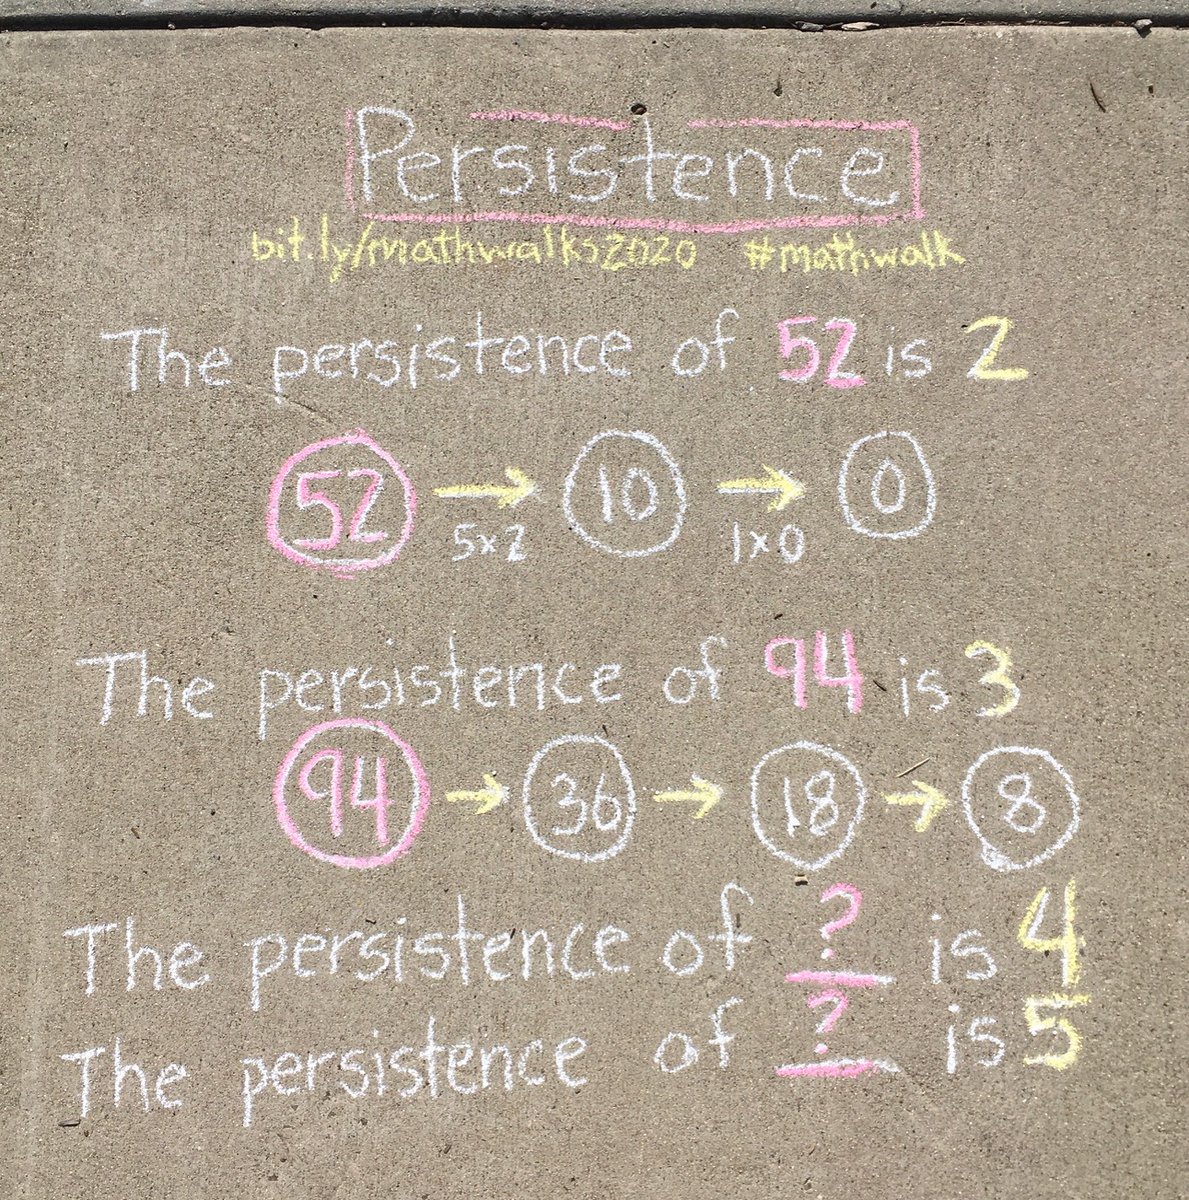 Persistence
bit.ly/mathwalks2020 #mathwalk
The persistence of 52 is 2
52 → 10 → 0
5×2 1×0
The persistence of 94 is 3
94 → 36 → 18 → 8
The persistence of ? is 4
The persistence of ? is 5